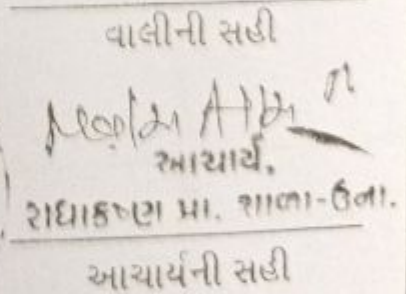 વાલીની સહી
આચાર્ય,
રાધાકૃષ્ણ પ્રા. શાળા-ઉના.
આચાર્યની સહી